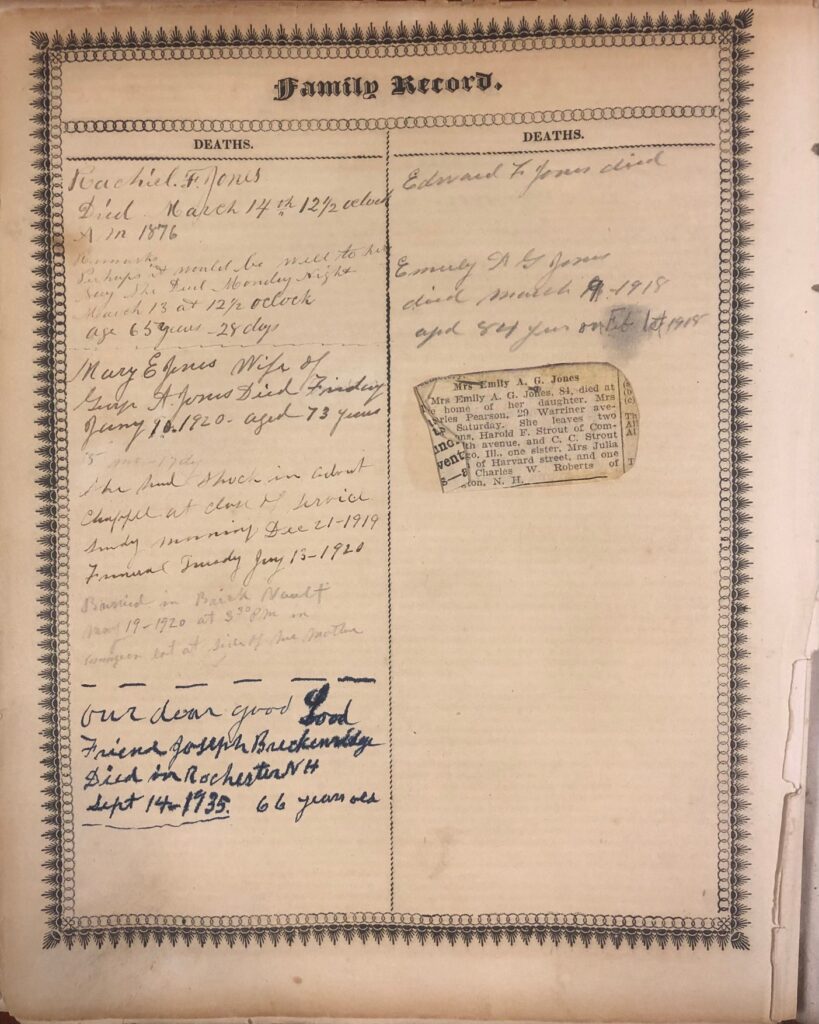 Family Record.
DEATHS.
Rachiel. F. Jones
Died March 14th 12 1/2 oclock
A M 1876
Remarks
Perhaps it would be well to
Say She Died Monday Night
March 13 at 12 1/2 oclock
age 65 years - 28 days
Mary E Jones Wife of
A Jones Died Friday
10. 1920 - aged 73 years
She had Shock in
Chappel at close of service
morning Dec 21-1919
Funeral 13-1920
Burried in Brick Vault
May 19-1920 at 3 30 P.M in
at side of her mother
Our dear good Good
Friend Joseph Breckenridge
Died in Rochester NH
Sept 14-1935. 66 years old
DEATHS.
Edward F Jones died
Emily A G Jones
died march 9-1918
aged 84 year on Feb 1st 1918
Mrs Emily A. G. Jones
Mrs Emily A. G. Jones, 84, died at
home of her daughter, Mrs
Pearson, 29 Warriner ave-
Saturday. She leaves two
Harold F. Strout of Com-
avenue, and C. C. Strout
Ill., one sister, Mrs Julia
of Harvard street, and one
Charles W. Roberts of
N. H.